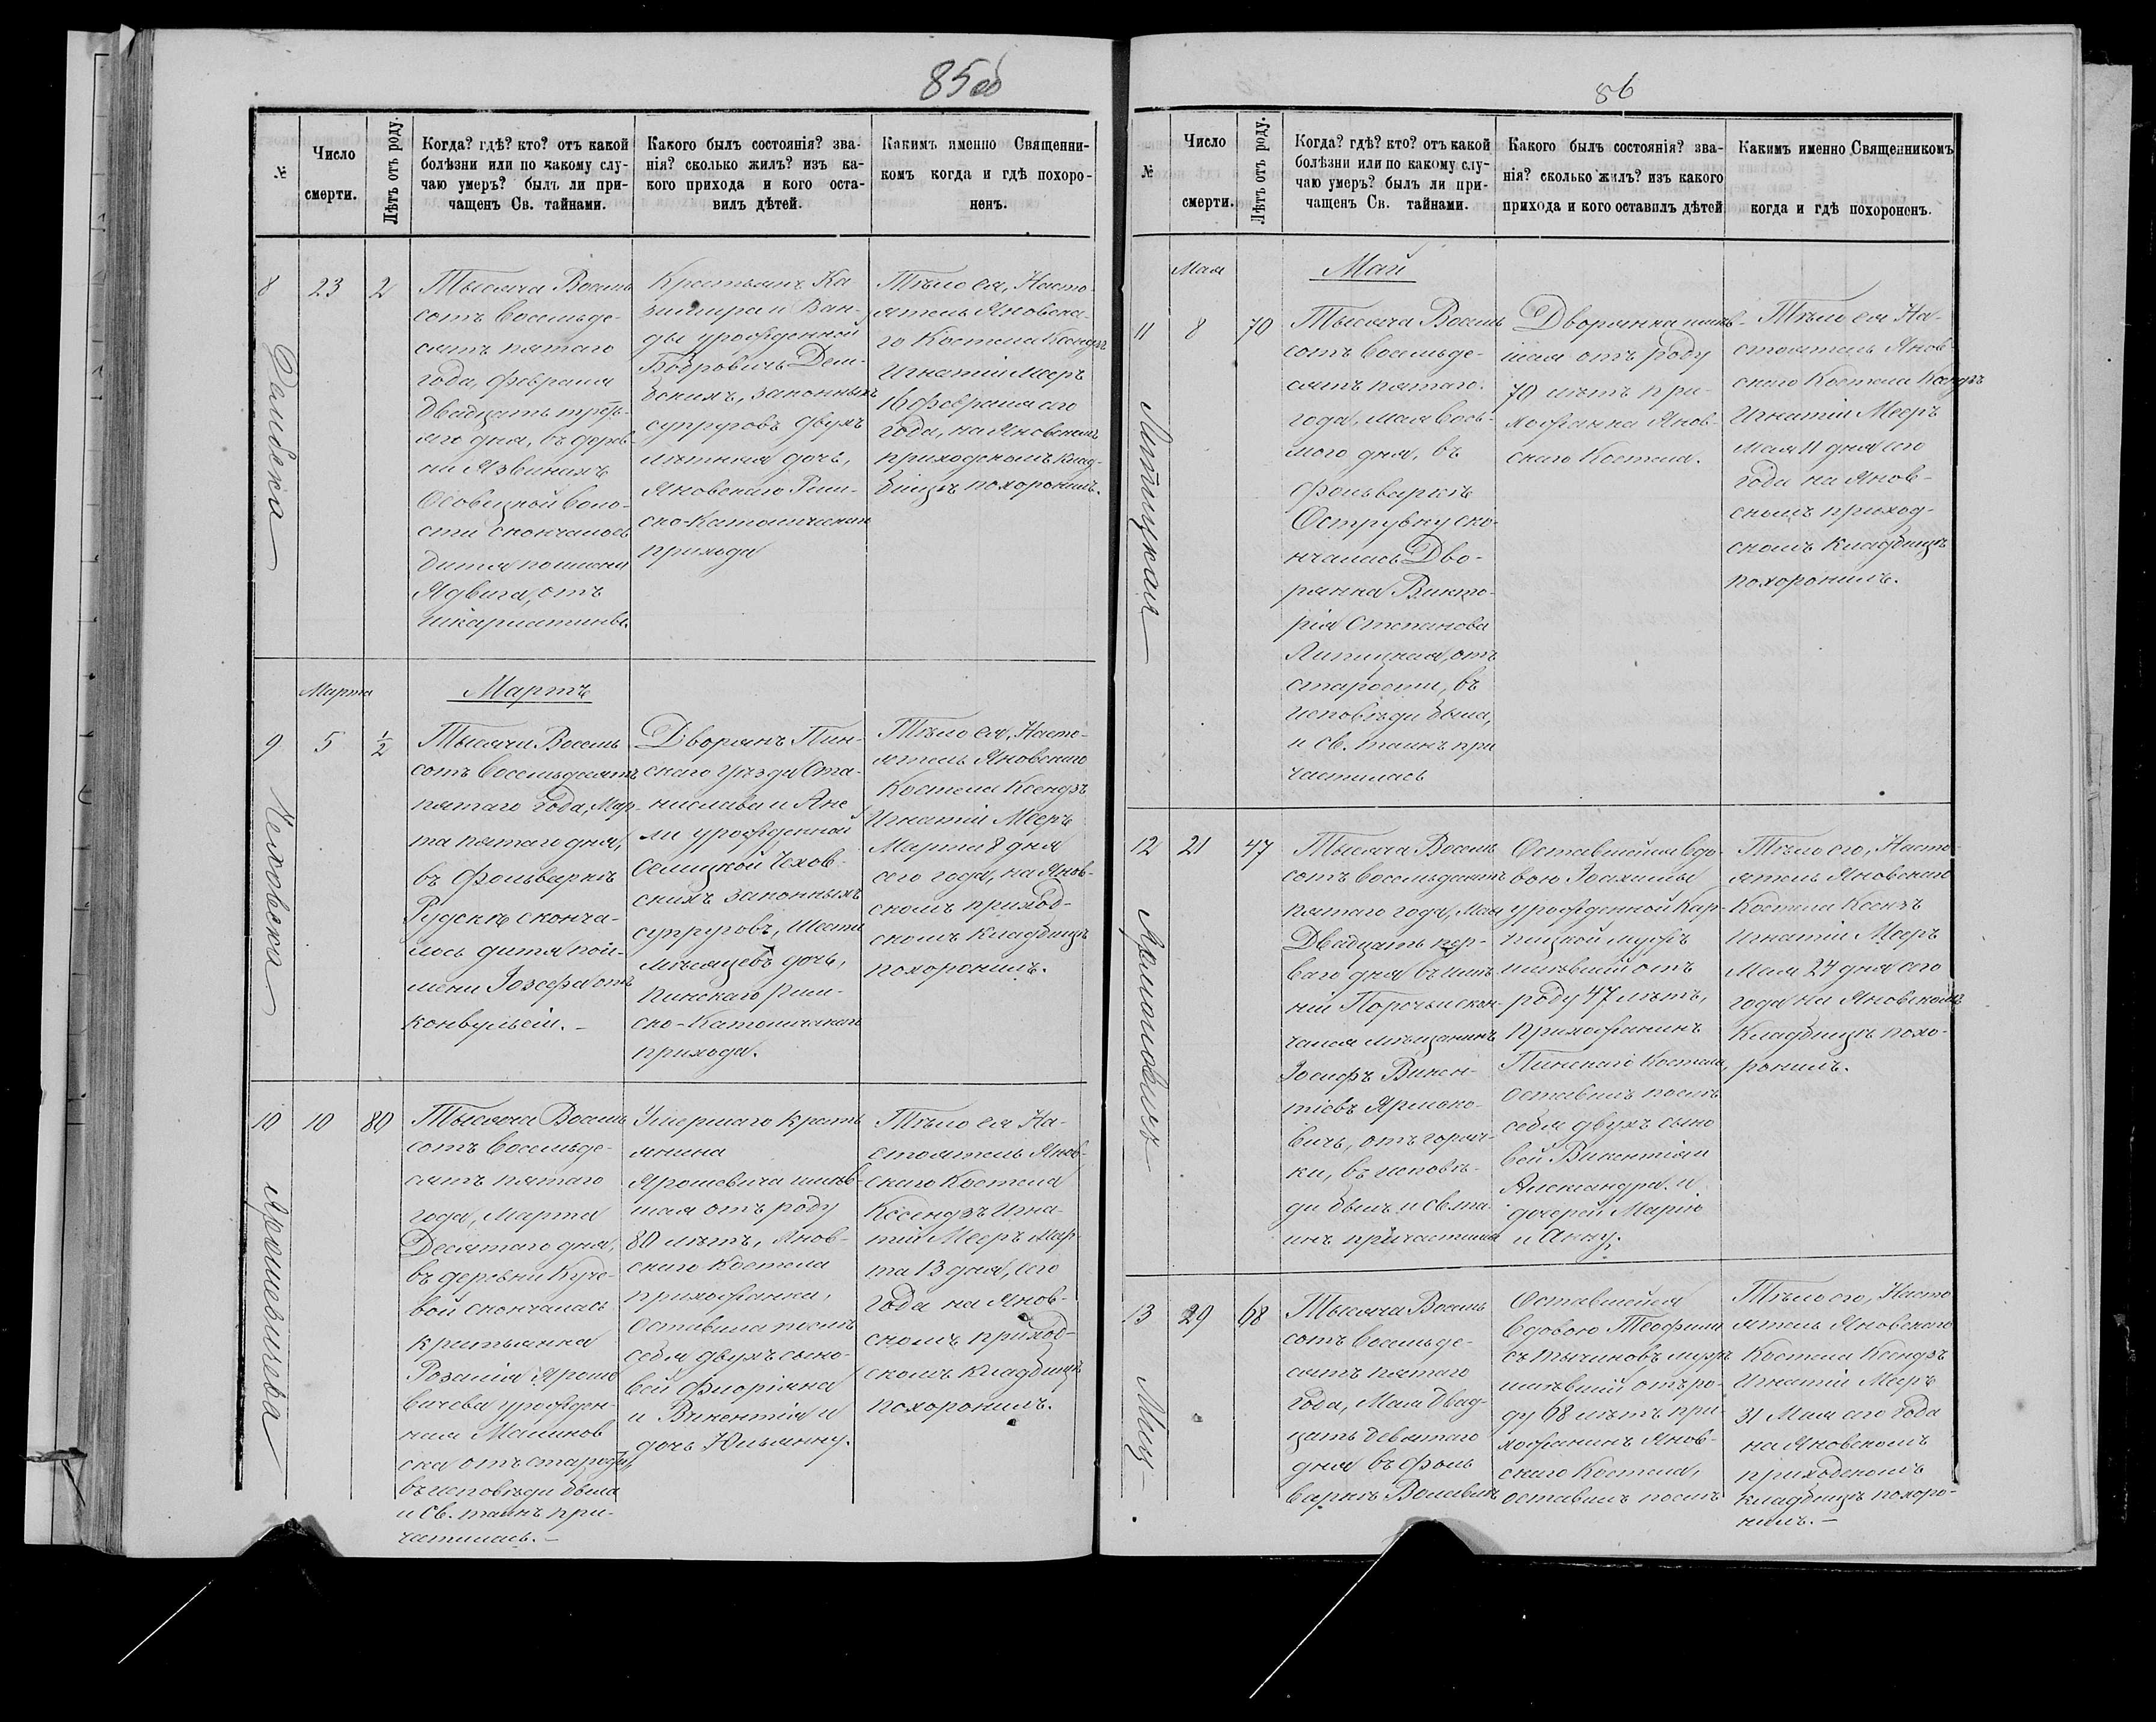 85 об
№
Число
смерти.
Лѣтъ отъ роду.
Когда? гдѣ? кто? отъ какой
болѣзни или по какому слу-
чаю умеръ? былъ ли при-
чащенъ Св. тайнами.
Какого былъ состоянія? зва-
нія? сколько жилъ? изъ ка-
кого прихода и кого оста-
вилъ дѣтей.
Какимъ именно Священни-
комъ когда и гдѣ похоро-
ненъ.
8
23
2
Тысяча Восемь
сотъ восемьде-
сятъ пятаго
года, февраля
двадцать третья-
яго дня, въ дерев-
ни Язвинихъ
Осовицкой воло-
сти скончалось
дитя по имени
Ядвига, отъ
шкарлатины.
Крестьянъ Ка
зимира и Ван-
ды урожденной
Бобровичъ Дем-
бскихъ, законныхъ
супруговъ двухъ
лѣтняя дочь,
Яновскаго Рим-
ско-Католическаго
прихода
Тѣло ея, Насто-
ятель Яновска-
го Костела Ксендзъ
Игнатій Мееръ
16 февраля сего
года, на Яновскомъ
приходскомъ клад-
бищѣ похоронилъ.
Марта
Мартъ
9
5
1/2
Чеховска
Тысяча Восемь
сотъ восемьдесятъ
пятаго года, Мар-
та пятаго дня,
въ Фольваркѣ
Рудскѣ сконча-
лось дитя пои-
мени Іозефа отъ
конвульсіи. –
Дворянъ Пин-
скаго уѣзда Ста-
нислава и Ане
ли урожденной
Селицкой Чехов-
скихъ законныхъ
супруговъ, шести
мѣсяцевъ дочь,
Пинскаго Рим-
ско-Католическаго
прихода.
Тѣло ея, Насто-
ятель Яновскаго
Костела Ксендзъ
Игнатій Мееръ
Марта 8 дня
сего года, на Янов-
скомъ приход-
скомъ кладбищѣ
похоронилъ.
10
10
80
Ярошевичева
Тысяча Восемь
сотъ восемьде-
сятъ пятаго
года, марта
Десятаго дня,
въ деревни Куде-
вой скончалась
крестьянка
Розалія Яроше
вичева урожден-
ная Малинов
ска отъ старости,
въ исповѣди была
и Св. таинъ при-
частилась. –
Умершаго кресть
янина
Ярошевича имѣв-
шая отъ роду
80 лѣтъ, Янов-
скаго Костела
прихожанка,
оставила послѣ
себя двухъ сыно-
вей Флоріяна
и Викентія и
дочь Юльянну.
Тѣло ея На-
стоятель Янов-
скаго Костела
Ксендзъ Игна-
тій Мееръ мар-
та 13 дня, сего
года на Янов-
скомъ приход-
скомъ кладбищѣ
похоронилъ.
86
№
Число
смерти.
Лѣтъ отъ роду.
Когда? гдѣ? кто? отъ какой
болѣзни или по какому слу-
чаю умеръ? былъ ли при-
чащенъ Св. тайнами.
Какого былъ состоянія? зва-
нія? сколько жилъ? изъ какого
прихода и кого оставилъ дѣтей
Какимъ именно Священникомъ
когда и гдѣ похороненъ.
Мая
Май
11
8
70
Липицкая
Тысяча Восемь
сотъ восемьде-
сятъ пятаго
года, мая вось-
мого дня, въ
фольваркѣ
Островну ско-
нчалась Дво-
рянка Викто-
рія Степанова
Липицкая, отъ
старости, въ
исповѣди была,
и св. таинъ при
частилась
Дворянка имѣв-
шая отъ роду
70 лѣтъ при-
хожанка Янов-
скаго Костела.
Тѣло ея На-
стоятель Янов-
скаго Костела Ксендзъ
Игнатій Мееръ
мая 11 дня сего
года на Янов-
скомъ приход-
скомъ кладбищѣ
похоронилъ.
12
21
47
Тысяча Восемь
сотъ восемьдесятъ
пятаго года, Мая
Двадцать пер-
ваго дня въ имѣ
ніи Поречьи скон-
чался мѣщанинъ
Іосифъ Викен-
тіевъ Ярмоко-
вичъ, отъ горяч-
ки, въ исповѣ-
ди былъ и св. та-
инъ причастился
Оставшейся вдо-
вою Іоахимы
урожденной Кар-
пицкой мужъ
имѣвшій отъ
роду 47 лѣтъ,
прихожанинъ
Пинскаго Костела,
оставилъ послѣ
себя двухъ сыно
вей Викентія и
Александра и
дочерей Марію
и Анну.
Тѣло его, Насто-
ятель Яновскаго
Костела Ксендзъ
Игнатій Мееръ
Мая 24 дня сего
года на Яновскомъ
Кладбищѣ похо-
ронилъ.
13
29
68
Миц-
Тысяча Восемь
сотъ восемьде-
сятъ пятаго
года, Мая двад-
цать девятаго
дня въ фоль
варкѣ Волавилъ
Оставшейся
вдовою Теофили
мужъ
имѣвшій отъ ро-
ду 68 лѣтъ при-
хожанинъ Янов-
скаго Костела,
оставилъ послѣ
Тѣло его, Насто
ятель Яновскаго
Костела Ксендзъ
Игнатій Мееръ
31 Мая сего года
на Яновскомъ
приходскомъ
кладбищѣ похоро-
нилъ. –